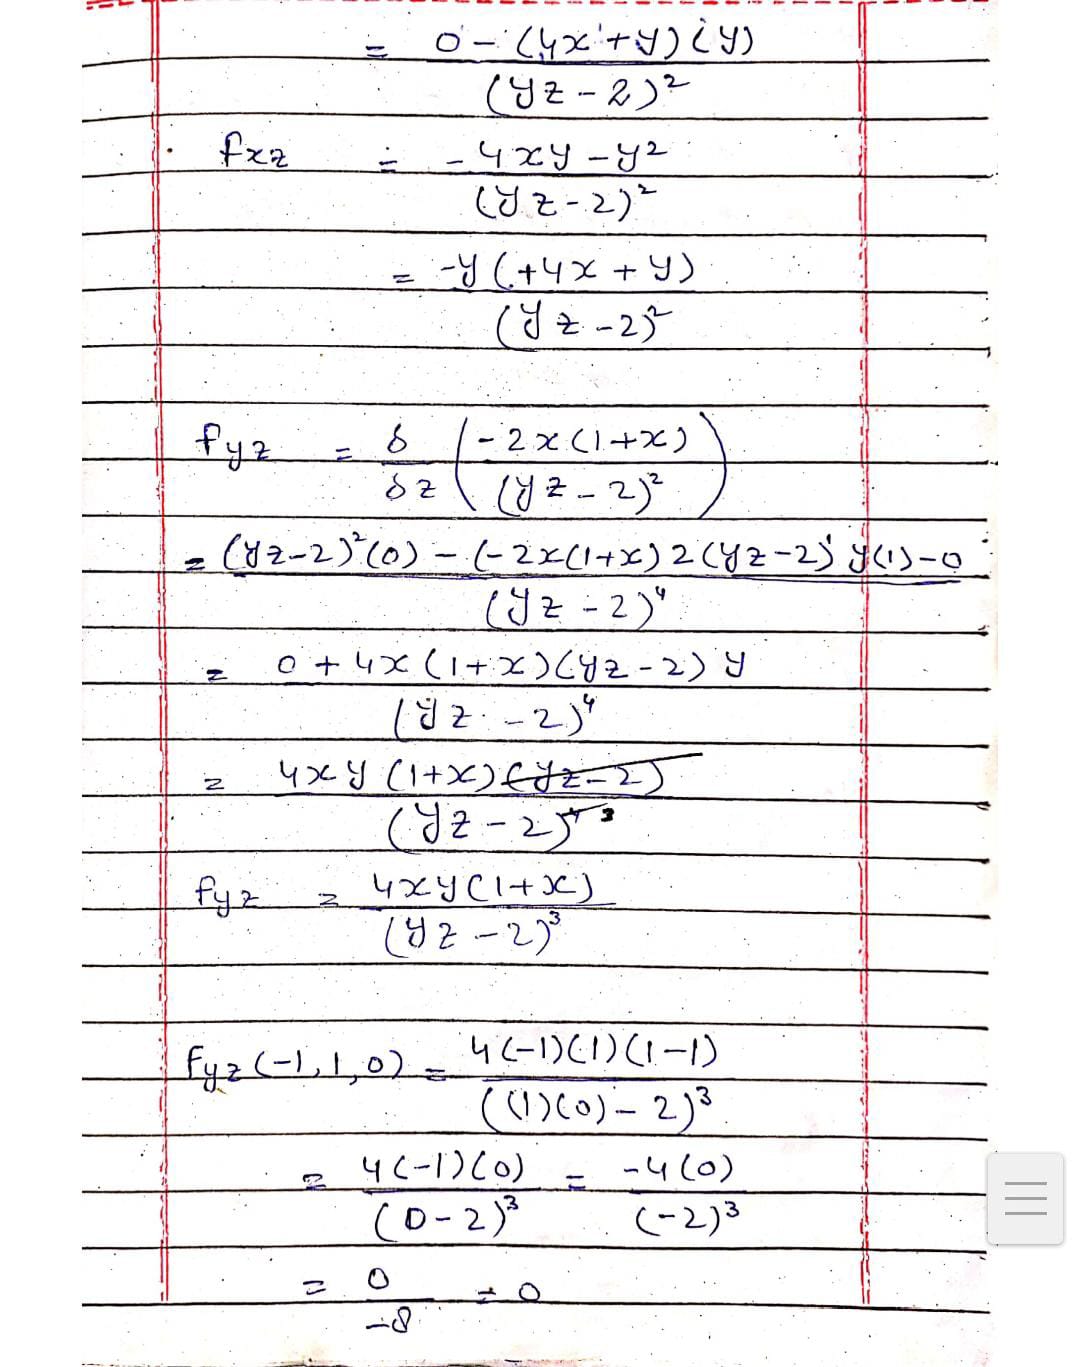 = 0 - (4x + y)(y)
(yz - 2)²
fxz = - 4xy - y²
(yz - 2)²
= -y(+4x + y)
(yz - 2)²
fyz = δ ( -2x(1+x) )
δz (yz - 2)²
= (yz-2)²(0) - (-2x(1+x)2(yz-2) y(1)-0
(yz - 2)⁴
= 0 + 4x(1+x)(yz-2) y
(yz - 2)⁴
= 4xy(1+x)(yz-2)
(yz - 2)⁴ ³
fyz = 4xy(1+x)
(yz - 2)³
fyz(-1,1,0) = 4(-1)(1)(1-1)
((1)(0) - 2)³
= 4(-1)(0) = -4(0)
(0-2)³ (-2)³
= 0 = 0
-8